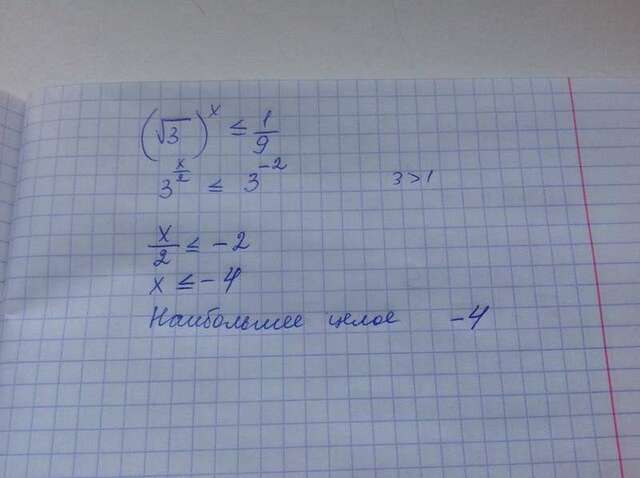 (√3)^x ≤ 1/9
3^(x/2) ≤ 3^(-2) 3>1
x/2 ≤ -2
x ≤ -4
Наибольшее целое -4